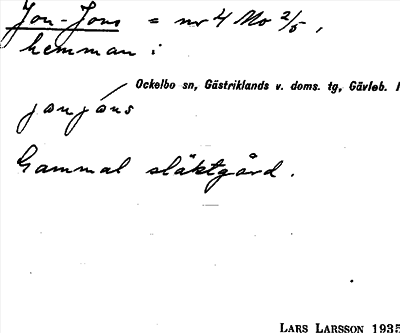 Jon-Jons = nr 4 Mo 2/5,
hemman:
Ockelbo sn, Gästriklands v. doms. tg, Gävleb. l
jonjóns
Gammal släktgård.
LARS LARSSON 1935